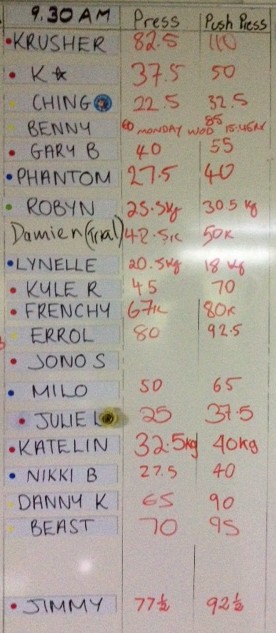 9.30 AM Press Push Press
KRUSHER 82.5 110
K 37.5 50
CHING 22.5 32.5
BENNY 60 MONDAY WOD 85
GARY B 40 55
PHANTOM 27.5 40
ROBYN 25.5kg 30.5 kg
Damien (Trial) 42.5K 50K
LYNELLE 20.5kg 18 kg
KYLE R 45 70
FRENCHY 67K 80K
ERROL 80 92.5
JONO S
MILO 50 65
JULIE L 25 37.5
KATELIN 32.5kg 40kg
NIKKI B 27.5 40
DANNY K 65 90
BEAST 70 95
JIMMY 77½ 92½